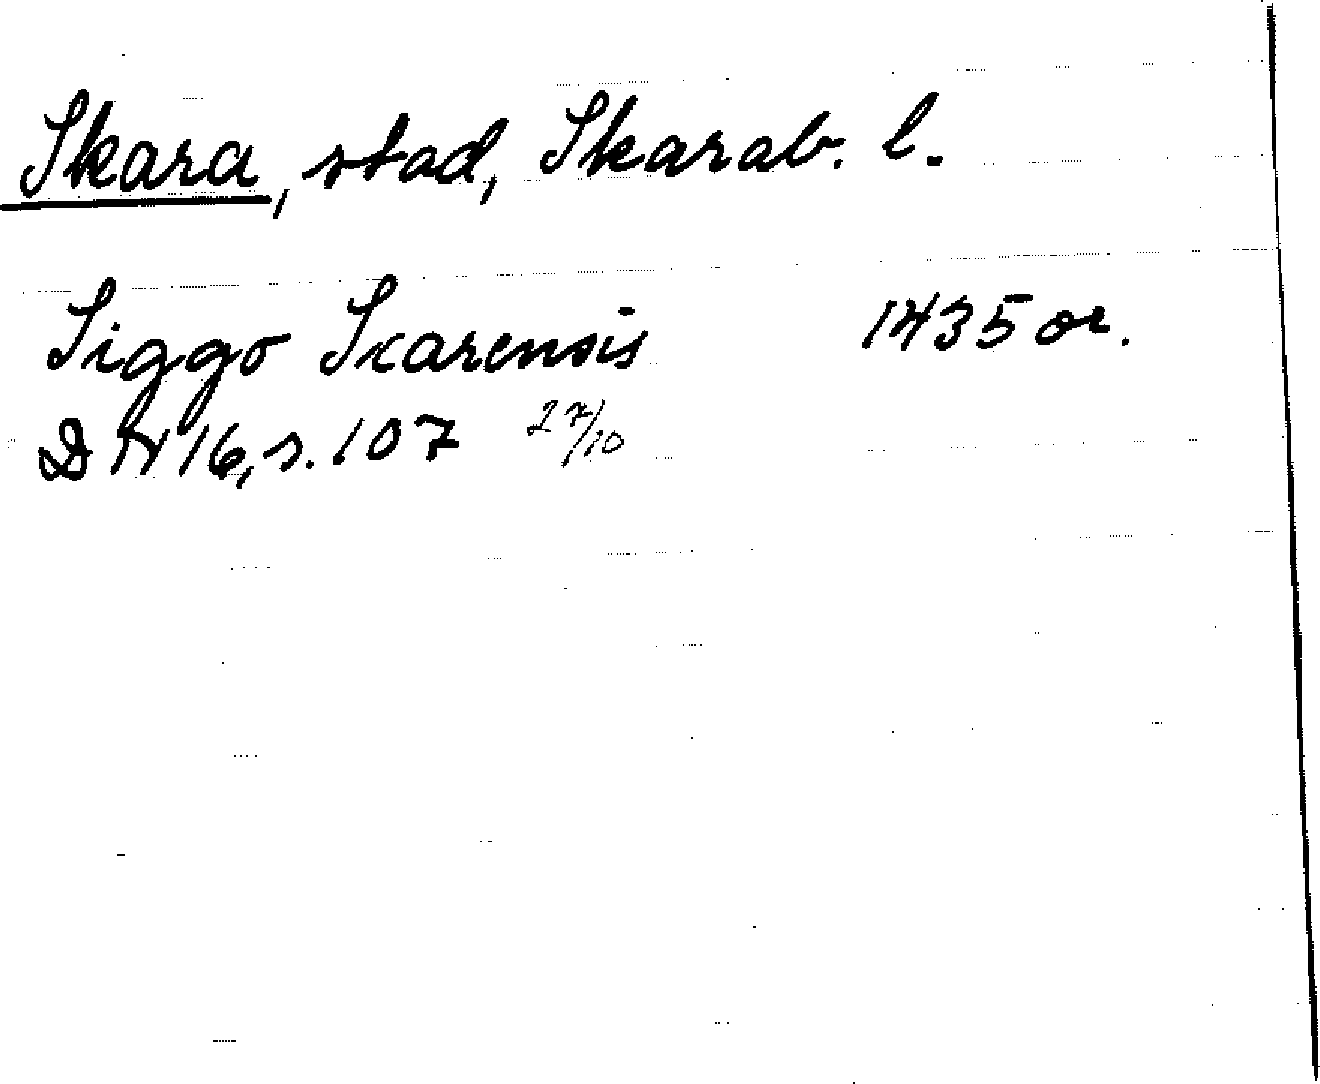 Skara, stad, Skarab. l.
Siggo Scarensis 1435 or.
DN 16, s. 107 27/10